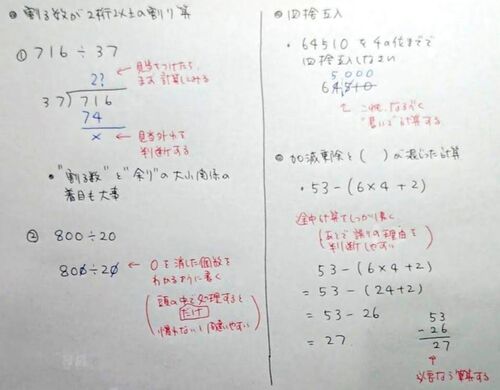 割る数が2桁以上の割り算
① 716 ÷ 37
2?
37)716
74
x
← 見当をつけたら、
まず計算してみる
← 見当外れを
判断する
・"割る数"と"余り"の大小関係の
着目も大事
② 800÷20
800÷20
← 0を消した個数を
わかるように書く
(頭の中で処理すると
だけ
慣れないと間違いやすい)
四捨五入
・64510を4の位までで
四捨五入しなさい
5,000
64,510
これ、なるべく
"急いで"計算する
加減乗除と( )が混じった計算
・53-(6×4+2)
途中計算でしっかり書く
(あとで誤りの理由を
判断しやすい)
53-(6×4+2)
= 53-(24+2)
= 53-26
= 27
53
-26
27
↑
必要なら筆算する